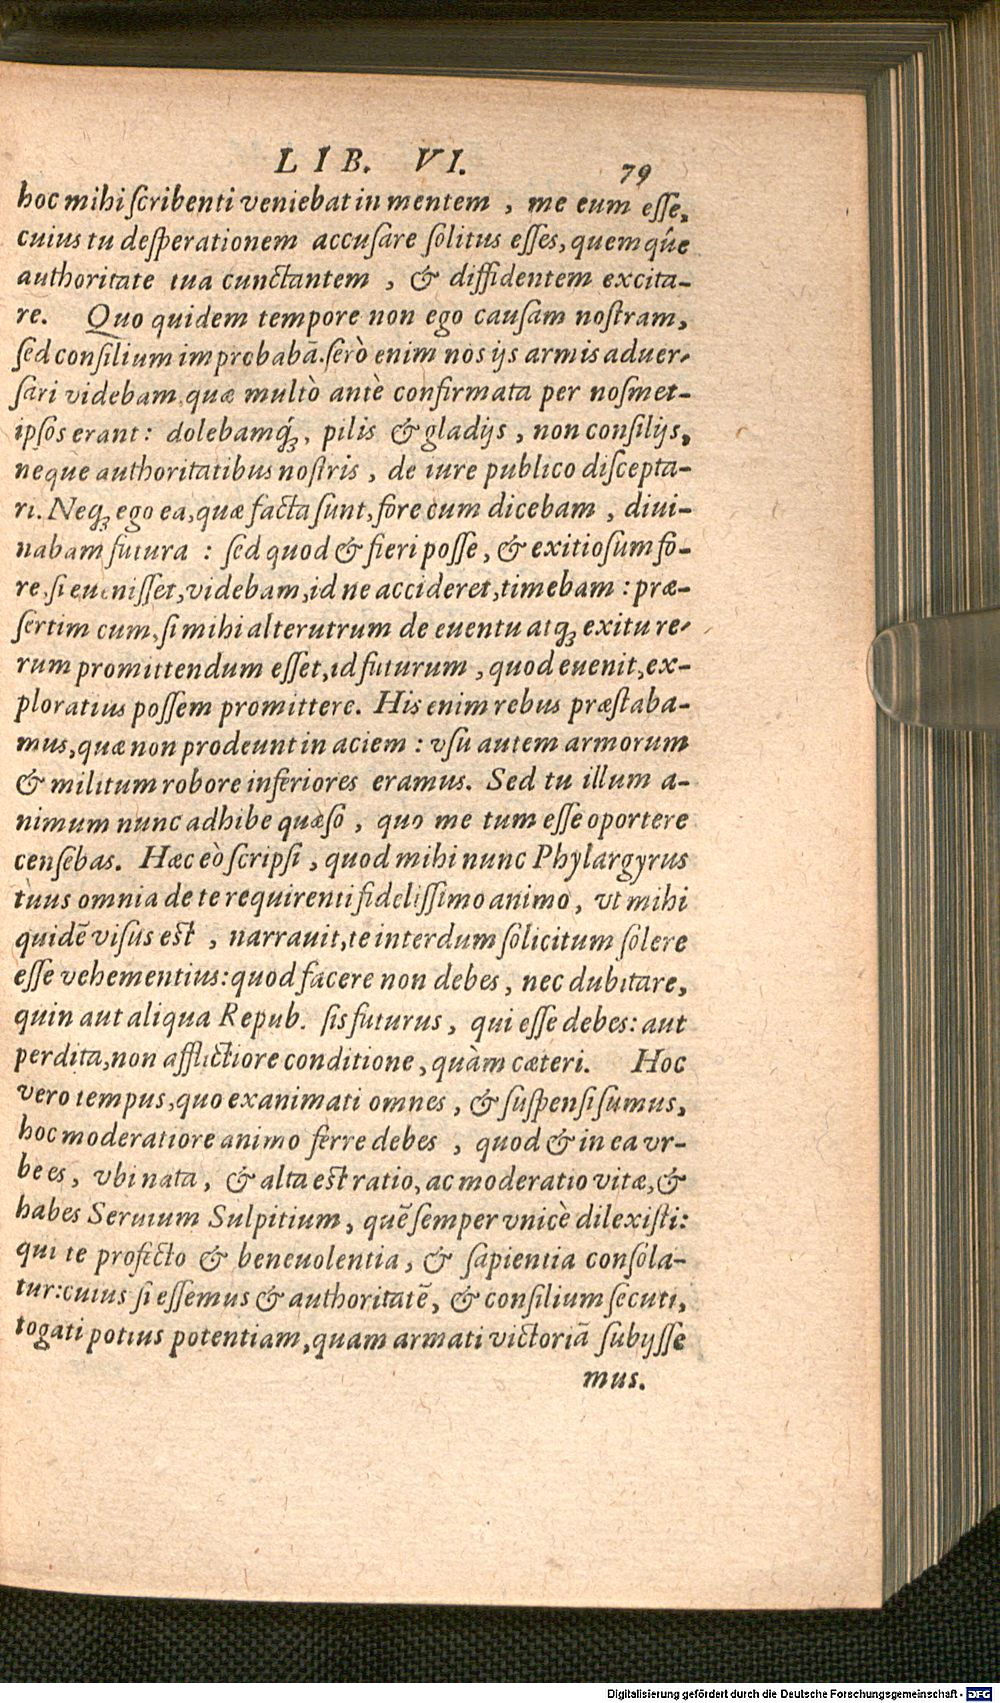 LIB. VI. 79
hoc mihi ſcribenti veniebat in mentem , me eum eſſe,
cuius tu deſperationem accuſare ſolitus eſſes, quemq́ue
authoritate tua cunctantem , & diffidentem excita-
re. Quo quidem tempore non ego cauſam noſtram,
ſed conſilium improbabā. ſerò enim nos ijs armis aduer-
ſari videbam, quæ multò antè confirmata per noſmet-
ipſos erant: dolebamq́ꝫ, pilis & gladijs , non conſilijs,
neque authoritatibus noſtris , de iure publico diſcepta-
ri. Neqꝫ ego ea, quæ facta ſunt, fore cum dicebam , diui-
nabam futura : ſed quod & fieri poſſe, & exitioſum fo-
re, ſi eueniſſet, videbam, id ne accideret, timebam : præ-
ſertim cum, ſi mihi alterutrum de euentu atqꝫ exitu re-
rum promittendum eſſet, id futurum , quod euenit, ex-
ploratius poſſem promittere. His enim rebus præſtaba-
mus, quæ non prodeunt in aciem : vſu autem armorum
& militum robore inferiores eramus. Sed tu illum a-
nimum nunc adhibe quæſo , quo me tum eſſe oportere
cenſebas. Hæc eò ſcripſi , quod mihi nunc Phylargyrus
tuus omnia de te requirenti fideliſſimo animo, vt mihi
quidē viſus eſt , narrauit, te interdum ſolicitum ſolere
eſſe vehementius: quod facere non debes , nec dubitare,
quin aut aliqua Repub. ſis futurus , qui eſſe debes: aut
perdita, non afflictiore conditione , quàm cæteri. Hoc
vero tempus, quo exanimati omnes , & ſuſpenſi ſumus,
hoc moderatiore animo ferre debes , quod & in ea vr-
be es, vbi nata, & alta eſt ratio, ac moderatio vitæ, &
habes Seruium Sulpitium, quē ſemper vnicè dilexiſti:
qui te profecto & beneuolentia , & ſapientia conſola-
tur: cuius ſi eſſemus & authoritatē, & conſilium ſecuti,
togati potius potentiam, quam armati victoriā ſubijſſe
mus.
Digitalisierung gefördert durch die Deutsche Forschungsgemeinschaft - DFG